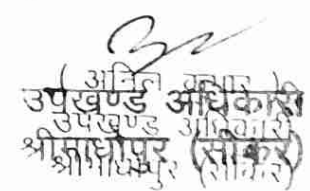 अनिल कुमार
उपखण्ड अधिकारी
उपखण्ड अधिकारी
श्रीमाधोपुर (सीकर)
श्रीमाधोपुर (सीकर)